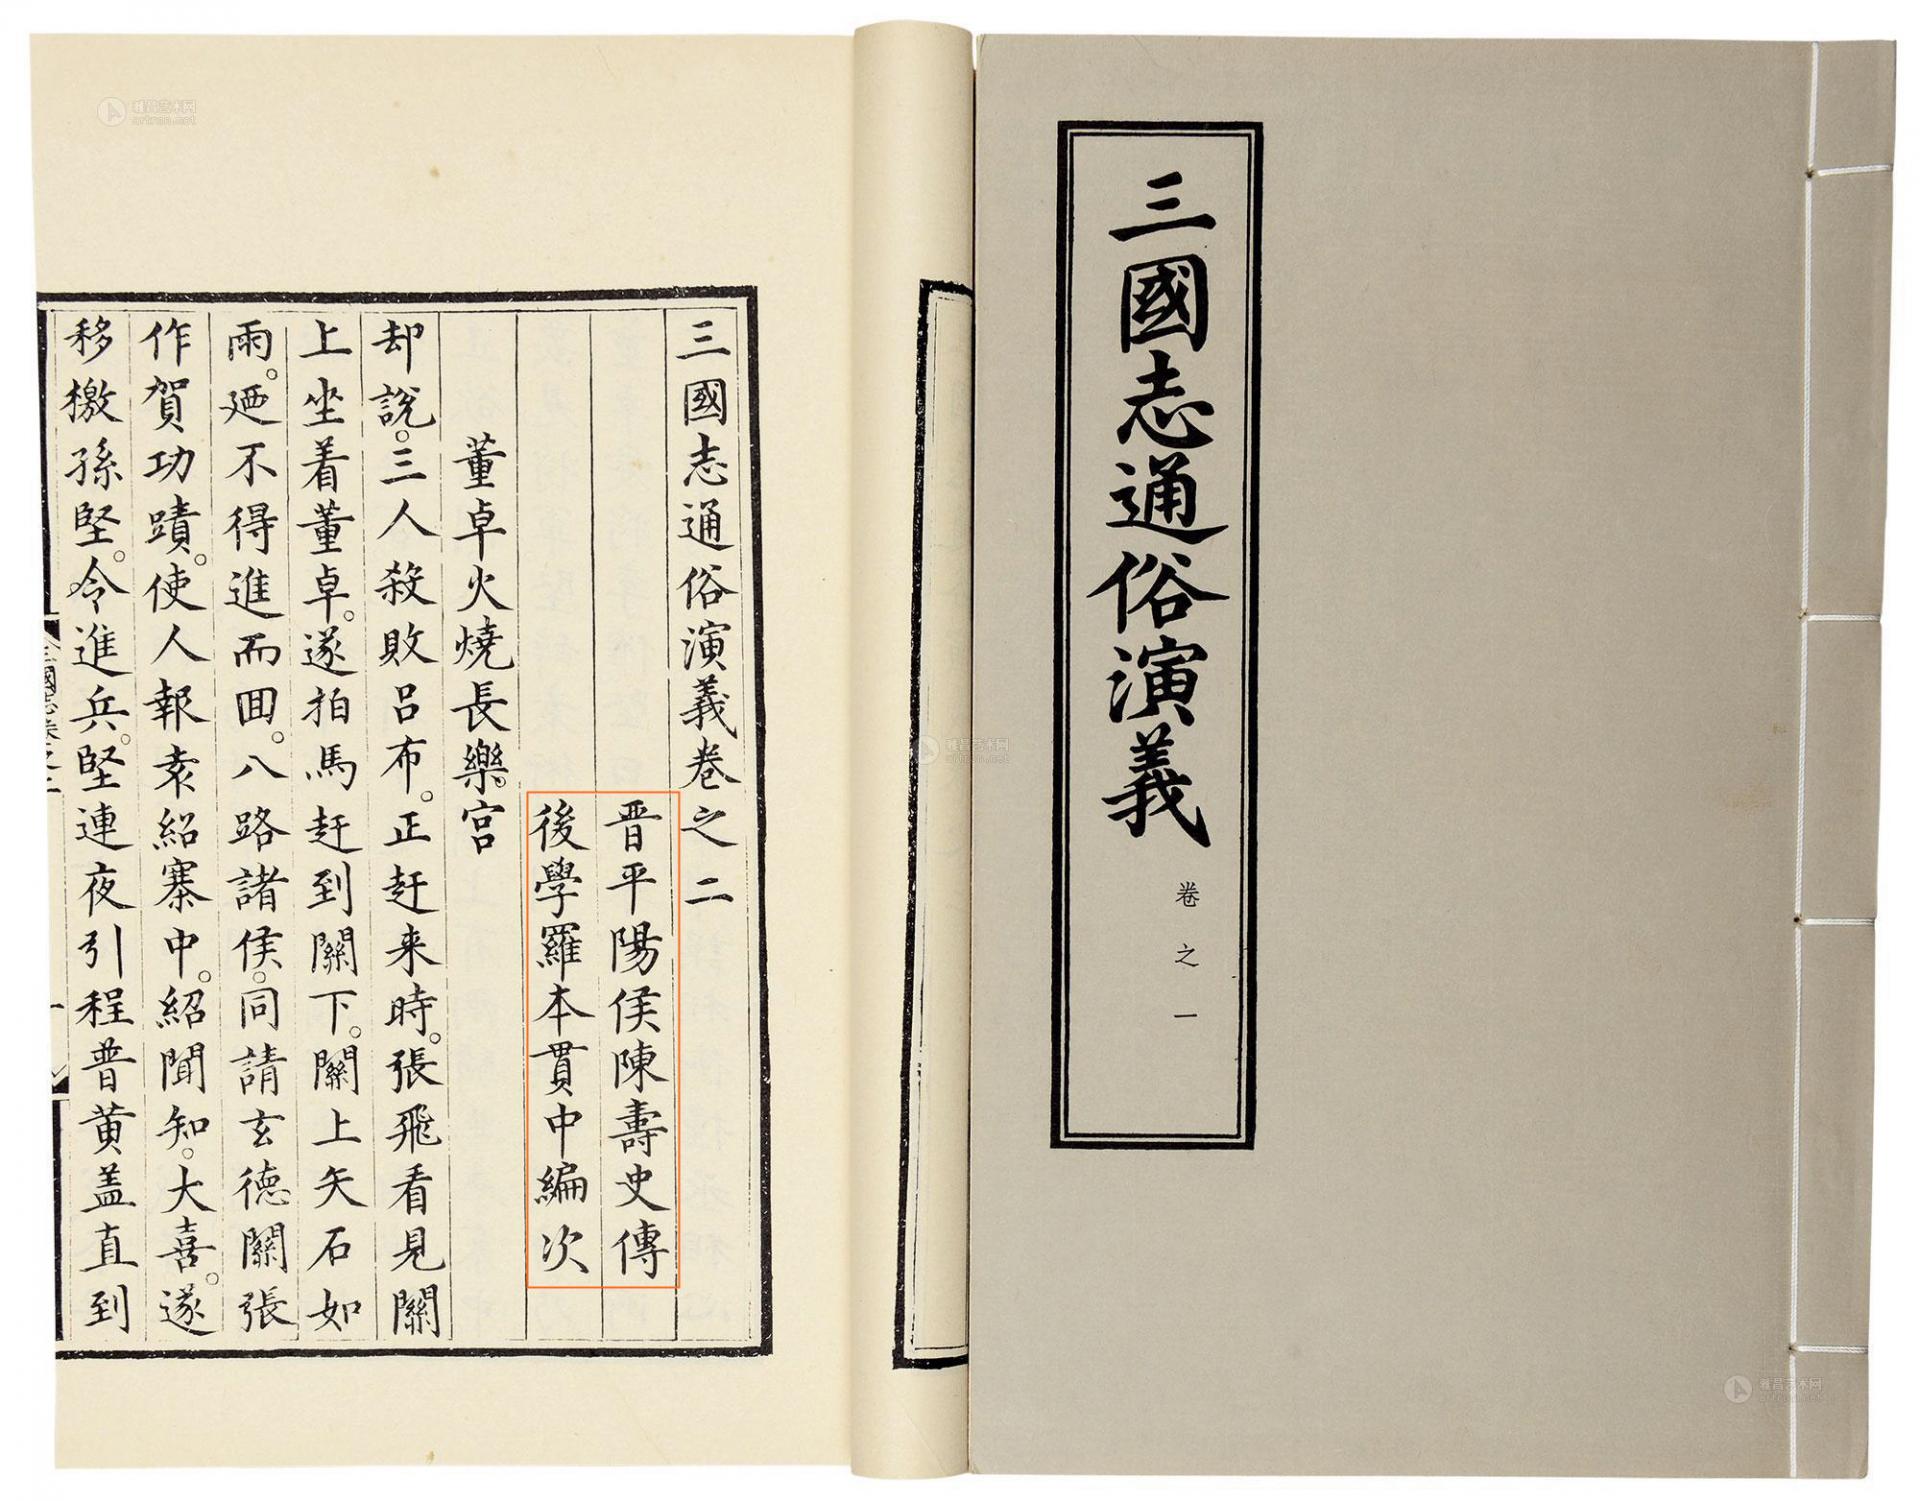 三國志通俗演義
卷之一
三國志通俗演義卷之二
晉平陽侯陳壽史傳
後學羅本貫中編次
董卓火燒長樂宮
却說三人殺敗呂布正赶来時張飛看見關
上坐着董卓遂拍馬赶到關下關上矢石如
雨廼不得進而囬八路諸侯同請玄德關張
作賀功蹟使人報袁紹寨中紹聞知大喜遂
移檄孫堅令進兵堅連夜引程普黄盖直到
三國志卷之二
雅昌艺术网
artron.net
雅昌艺术网
artron.net
雅昌艺术网
artron.net